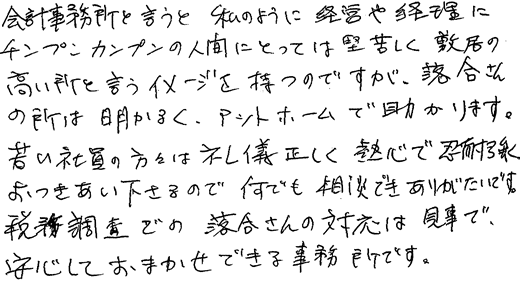 会計事務所と言うと 私のように 経営や経理に
チンプンカンプンの人間にとっては堅苦しく敷居の
高い所と言うイメージを持つのですが、落合さん
の所は明かるく、アットホームで助かります。
若い社員の方々は礼儀正しく 熱心で忍耐強く
おつきあい下さるので 何でも相談できありがたいです。
税務調査での 落合さんの対応は見事で、
安心しておまかせできる事務所です。